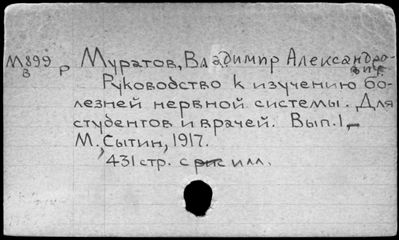 М899 р Муратов, Владимир Александро-
в вич.
Руководство к изучению бо-
лезней нервной системы. Для
студентов и врачей. Вып.1,-
М., Сытин, 1917.
431 стр. с рис илл.